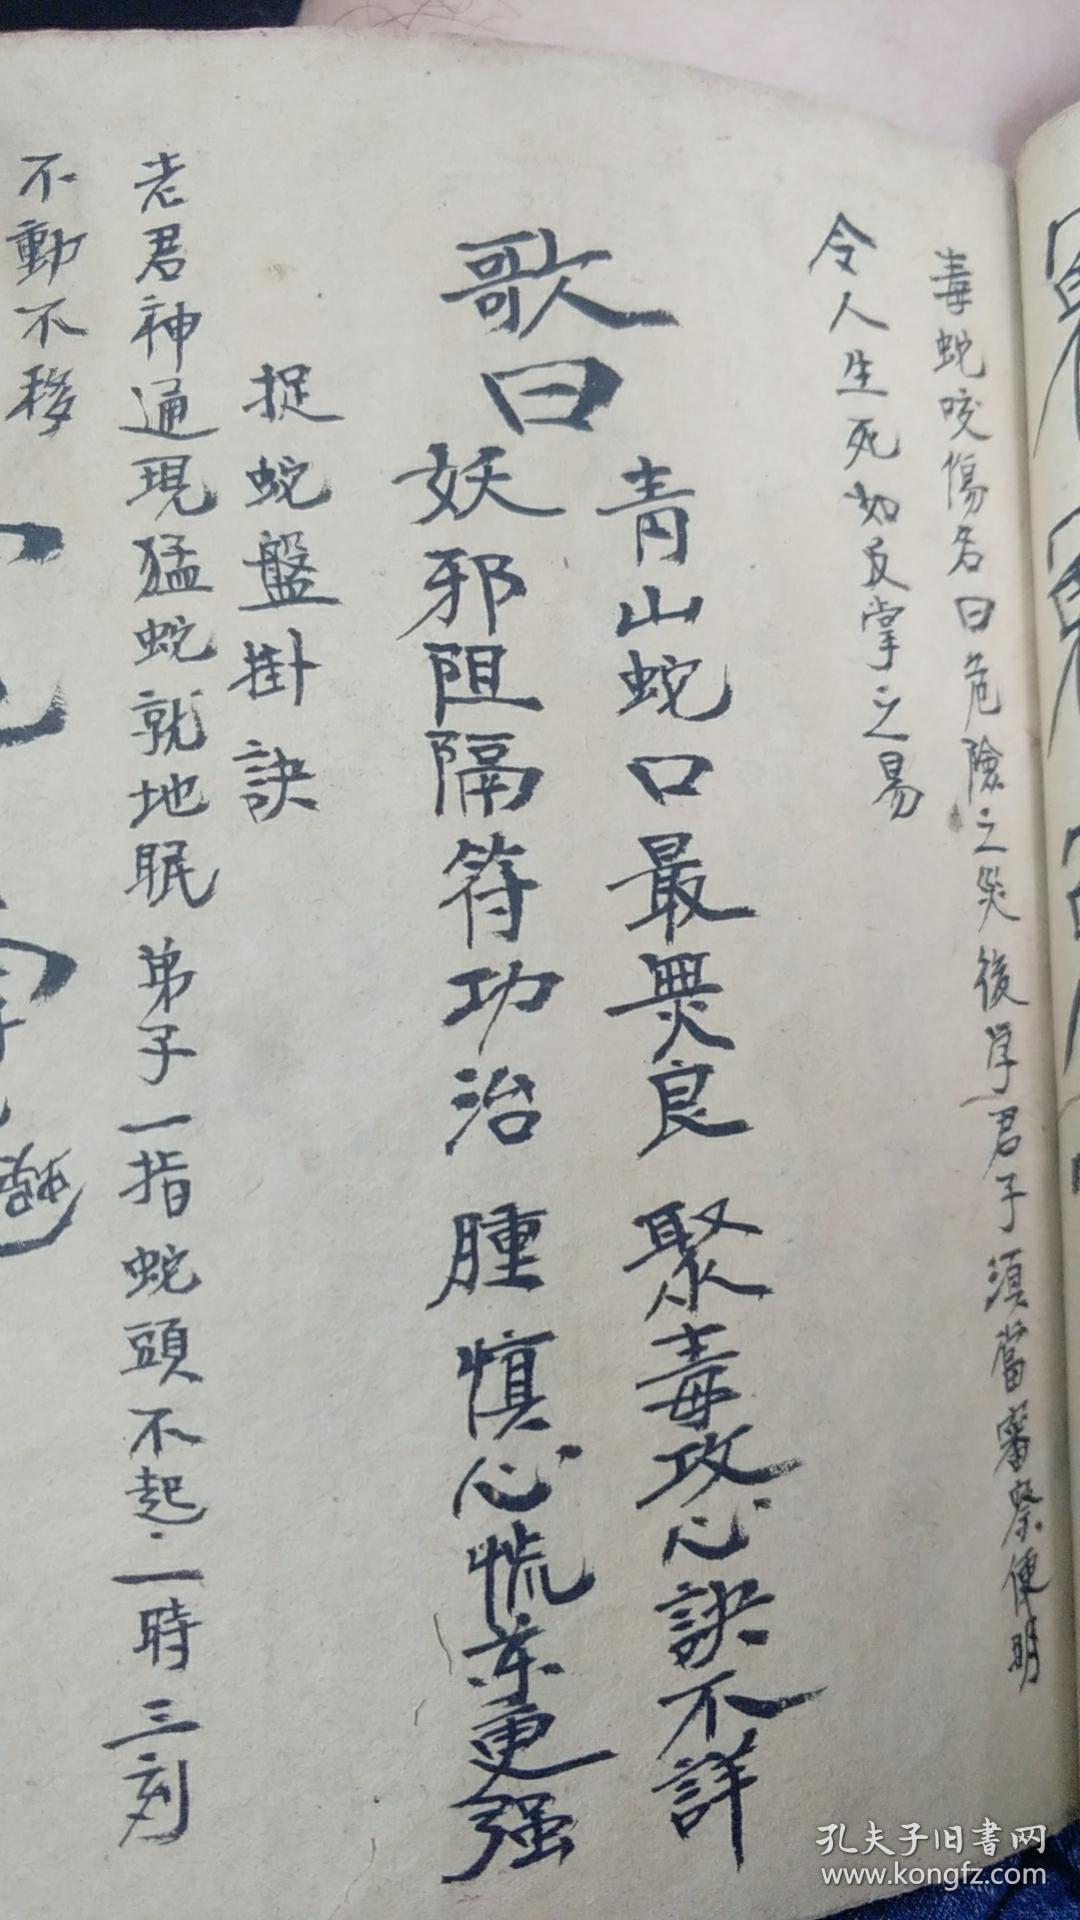 毒蛇咬傷名曰危險之災後学君子須當審察便明
令人生死如反掌之易
歌曰
青山蛇口最畏良 聚毒攻心訣不詳
妖邪阻隔符功治 腫慎心慌亦更强
捉蛇盤掛訣
老君神通現猛蛇就地眠 弟子一指蛇頭不起一時三刻
不動不移
孔夫子旧書网
www.kongfz.com